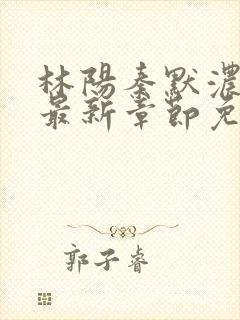 林陽秦默濃
最新章節免
郭子睿